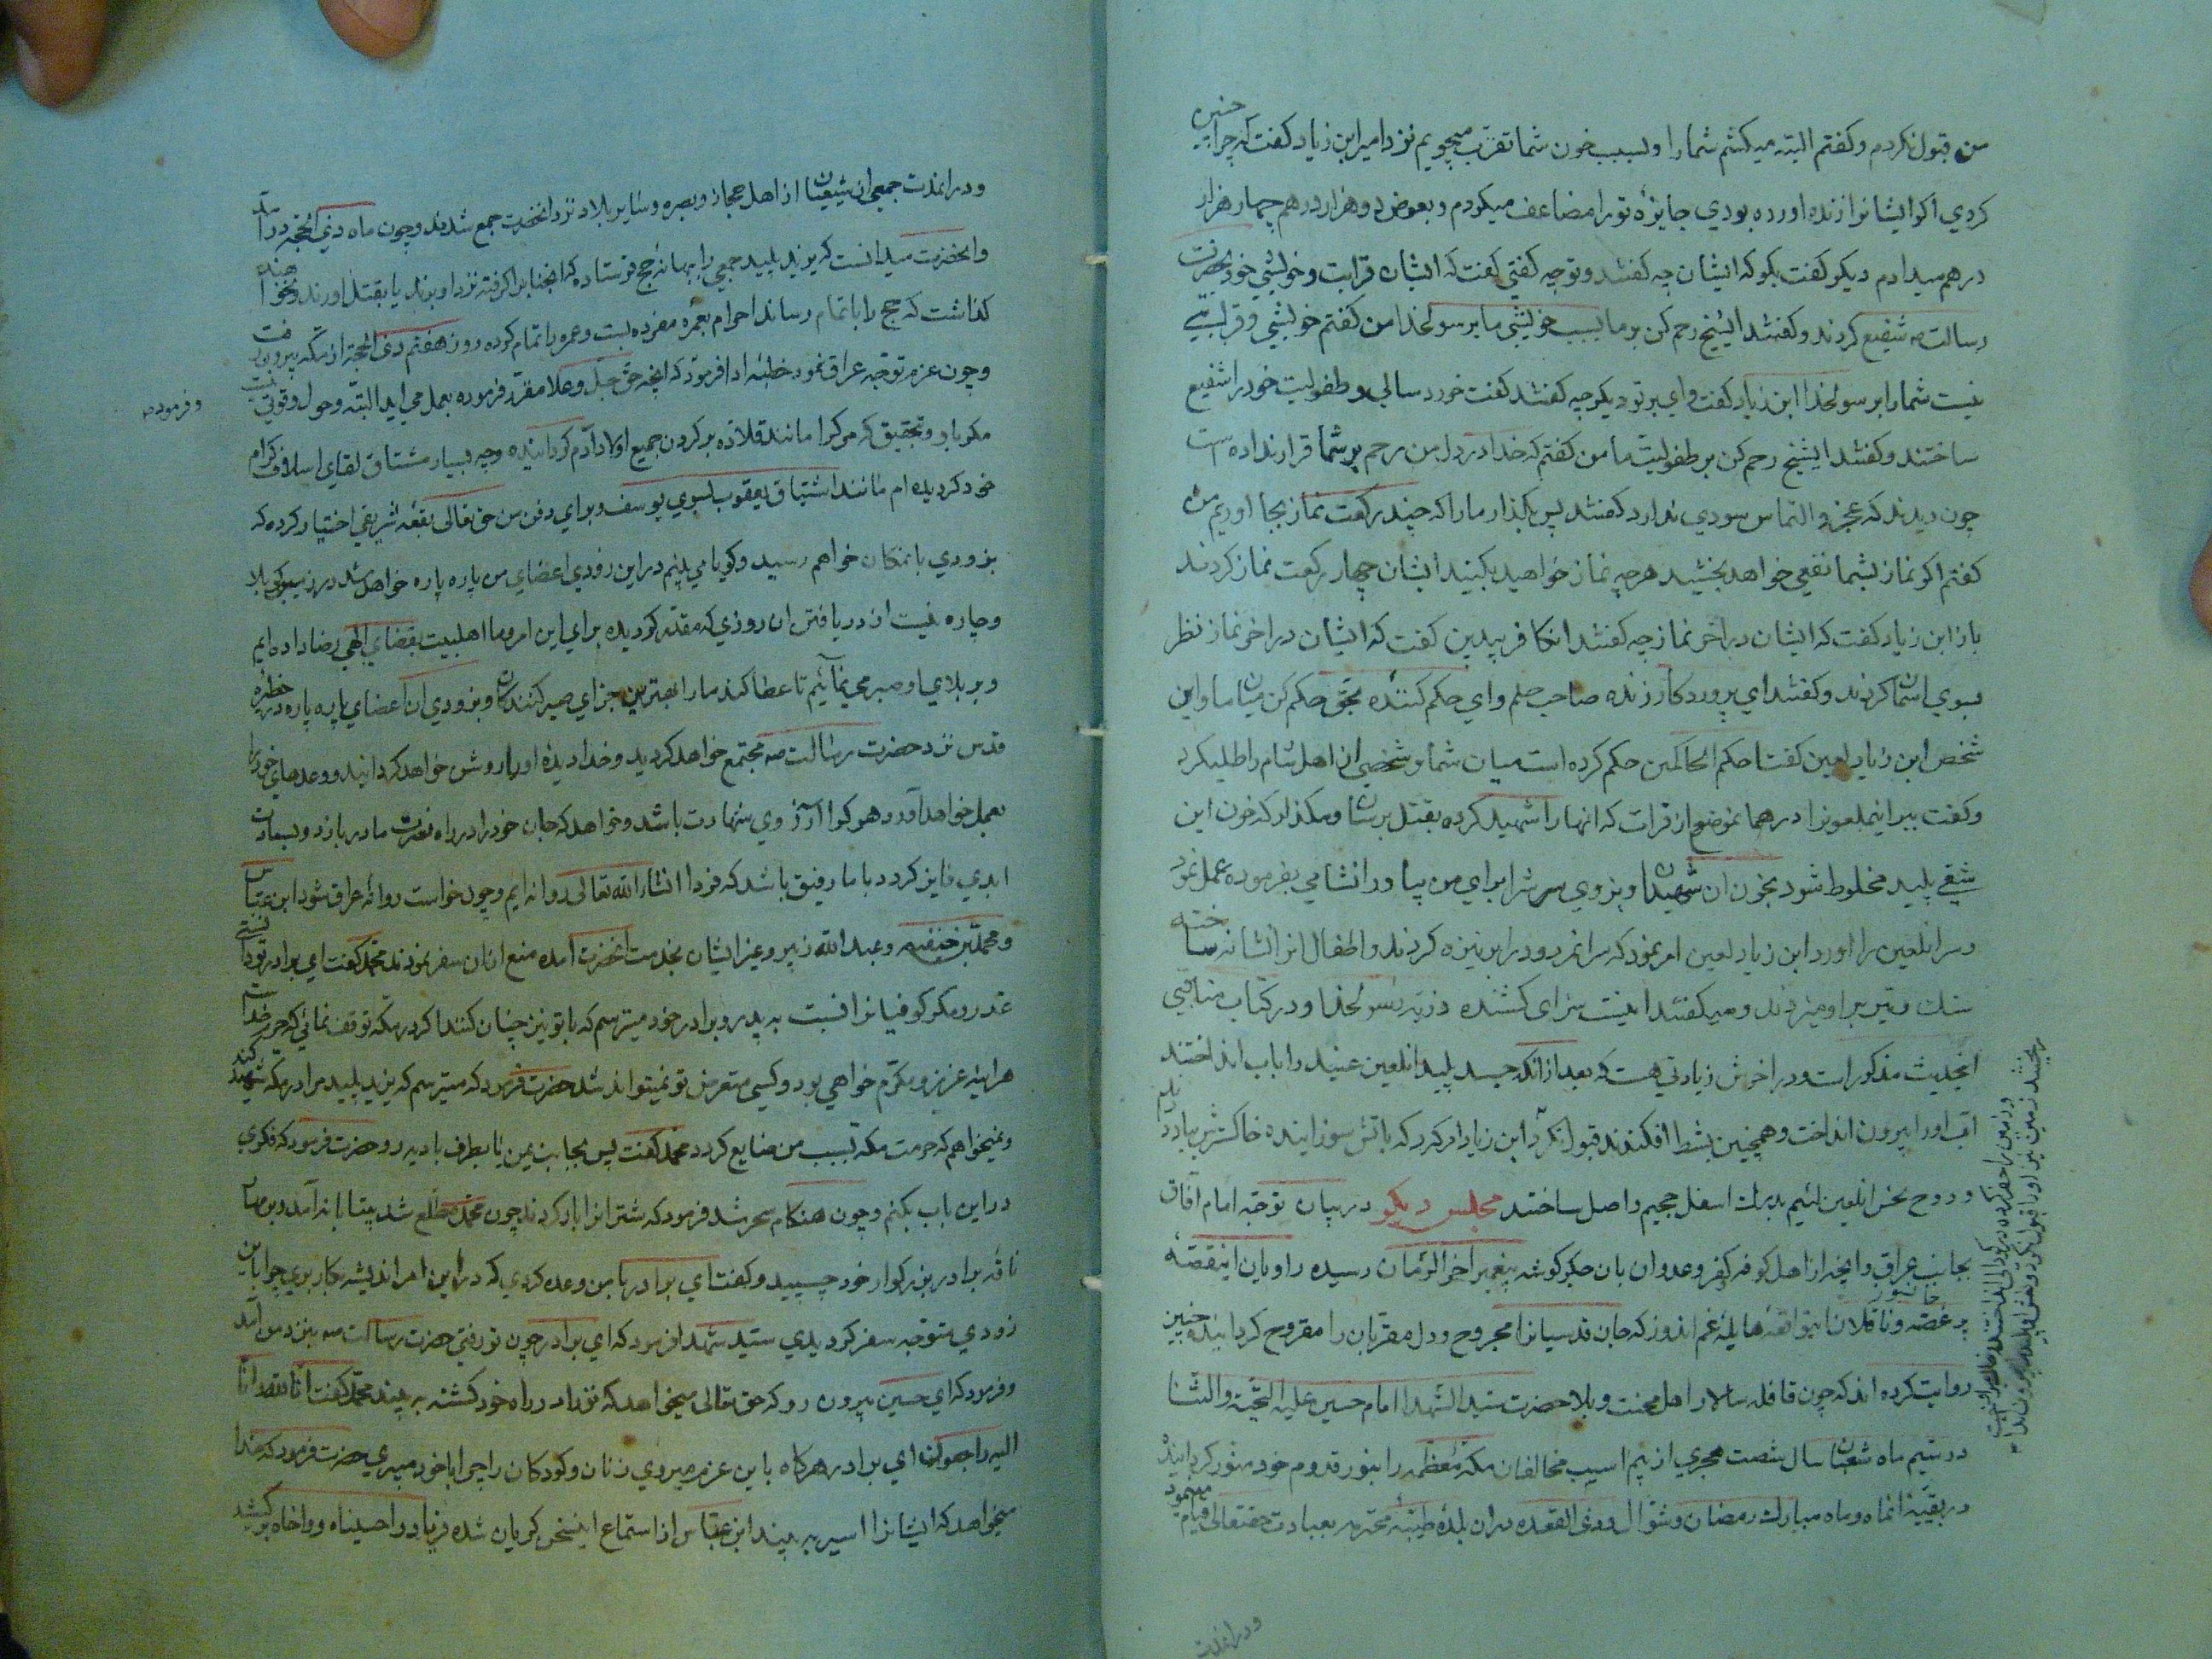 من قبول نکردم و کفتم البته میکشم شما را و بسبب خون شما تقرب میجویم نزد امیر ابن زیاد کفت که چرا چنین
کردی اکر ایشانرا زنده اورده بودی جایزه تو را مضاعف میکردم و بعوض دو هزار درهم چهار هزار
درهم میدادم دیکر کفت بکو که ایشان چه کفتند و تو چه کفتی کفت که ایشان قرابت و خویشی خود بحضرت
رسالت صه شفیع کردند و کفتند ایشیخ رحم کن بر ما بسبب خویشی ما برسولخدا من کفتم خویشی و قرابتی
نیست شما را برسولخدا ابن زیاد کفت وای بر تو دیکر چه کفتند کفت خورد سالی و طفولیت خود را شفیع
ساختند و کفتند ایشیخ رحم کن بر طفولیت ما من کفتم که خدا در دل من رحم بر شما قرار نداده است
چون دیدند که عجز و التماس سودی ندارد کفتند پس بکذار ما را که چند رکعت نماز بجا اوریم من
کفتم اکر نماز بشما نفعی خواهد بخشید هر چه نماز خواهید بکنید ایشان چهار رکعت نماز کردند
باز ابن زیاد کفت که ایشان در اخر نماز چه کفتند انکافر بیدین کفت که ایشان در اخر نماز نظر
بسوی اسمان کردند و کفتند ای پروردکار زنده صاحب حلم و ای حکم کننده بحق حکم کن میان ما و این
شخص ابن زیاد لعین کفت احکم الحاکمین حکم کرده است میان شما و شخصی از اهل شام را طلبکرد
و کفت ببر اینملعونرا در همانموضع از فرات که انها را شهید کرده بقتل برسان و مکذار که خون این
شقی پلید مخلوط شود بخون ان شهیدان و بزودی سرشرا برای من بیاور انشامی بفرموده عمل نمود
و سر انلعین را اورد ابن زیاد لعین امر نمود که سر انمردود را بر نیزه کردند و اطفال انرا نشانه ساخته
سنک و تیر بر او میزدند و میکفتند اینست سزای کشنده ذریه رسولخدا و در کتاب مناقب
اینحدیث مذکور است و در اخرش زیادتی هست که بعد از انکه جسد پلید انلعین عنید را باب انداختند
اب او را بیرون انداخت و همچنین بشط افکندند قبول نکرد ابن زیاد امر کرد که باتش سوزانیده خاکسترش بباد دادیم
و روح نحس انلعین لئیم بدرک اسفل جحیم واصل ساختند مجلس دیکر در بیان توجه امام آفاق
بجانب عراق و انچه از اهل کوفه کفر و عدوان بان جکرکوشه پیغمبر اخر الزمان رسیده راویان اینقصه
پر غصه و ناقلان اینواقعه هایله غم اندوز جانسوز که جان قدسیانرا مجروح و دل مقربان را مقروح کردانیده چنین
روایت کرده اند که چون قافله سالار اهل محنت و بلا حضرت سید الشهدا امام حسین علیه التحیة والثنا
در سیم ماه شعبان سال شصت هجری از بیم اسیب مخالفان مکه معظمه را بنور قدوم خود منور کردانیده
در بقیه انماه و ماه مبارک رمضان و شوال و ذی القعده در ان بلده طیبه محترمه بعبادت حقتعالی قیام مینمود
و در انمدت
و درانمدت جمعی از شیعیان از اهل حجاز و بصره و سایر بلاد نزد انحضرت جمع شدند و چون ماه ذی الحجه درآمد
و انحضرت میدانست که یزید پلید جمعی را ببهانه حج فرستاده که انجناب را کرفته نزد او برند یا بقتل اورند و نخواهند
کذاشت که حج را باتمام رساند احرام بعمره مفرده بست و عمره را تمام کرده روز هفتم ذی الحجه از مکه بیرون رفت
و چون عزم توجه عراق نمود خطبه ادا فرمود که انچه حق جل و علا مقرر فرموده بعمل می اید البته و حول و قوتی نیست
و فرموده
مکر باو و بتحقیق که مرک را مانند قلاده بر کردن جمیع اولاد آدم کردانیده و چه بسیار مشتاق لقای اسلاف کرام
خود کردیده ام مانند اشتیاق یعقوب بسوی یوسف و برای دفن من حق تعالی بقعه شریفی اختیار کرده که
بزودی بانمکان خواهم رسید و کویا می بینم در این زودی اعضای من پاره پاره خواهد شد در زمین کربلا
و چاره نیست از دریافتن ان روزی که مقدر کردیده برای این امر و ما اهلبیت بقضای الهی رضا داده ایم
و بر بلای او صبر می نمائیم تا عطا کند ما را بهترین جزای صبر کنندکان و بزودی ان اعضای پاره پاره در حظیره
قدس نزد حضرت رسالت صه مجتمع خواهد کردید و خدا دیده او را روشن خواهد کردانید و وعدهای خود را
بعمل خواهد آورد و هر کرا آرزوی شهادت باشد و خواهد که جان خود را در راه نصرت ما در بازد و بسعادت
ابدی فایز کردد با ما رفیق باشد که فردا انشاء الله تعالی روانه ایم و چون خواست روانه عراق شود ابن عباس
و محمد بن حنفیه و عبدالله زبیر و غیر ایشان بخدمت انحضرت امده منع از ان سفر نمودند محمد کفت ای برادر تو دانستی
غدر و مکر کوفیانرا نسبت به پدر و برادر خود میترسم که با تو نیز چنان کنند اکر در مکه توقف نمائی که حرم خداست
هراینه عزیز و مکرم خواهی بود و کسی متعرض تو نمیتواند شد حضرت فرمود که میترسم که یزید پلید مرا در مکه شهید کند
و نمیخواهم که حرمت مکه بسبب من ضایع کردد محمد کفت پس بجانب یمن یا بطرف بادیه رو حضرت فرمود که فکری
در این باب بکنم و چون هنکام سحر شد فرمود که شترانرا بار کردند چون محمد مطلع شد بیتابانه آمد و بر مهار
ناقه برادر بزرکوار خود چسپید و کفت ای برادر با من وعده کردی که در این امر اندیشه بکار بری چرا باین
زودی متوجه سفر کردیدی سید شهدا فرمود که ای برادر چون تو رفتی حضرت رسالت صه بنزد من آمد
و فرمود که ای حسین بیرون رو که حق تعالی میخواهد که تو را در راه خود کشته به بیند محمد کفت انا لله و انا
الیه راجعون ای برادر هر کاه باین عزم میروی زنان و کودکان را چرا با خود میبری حضرت فرمود که خدا
میخواهد که ایشانرا اسیر به بیند ابن عباس از استماع اینسخن کریان شده فریاد وا حسیناه و وا اخاه برکشید